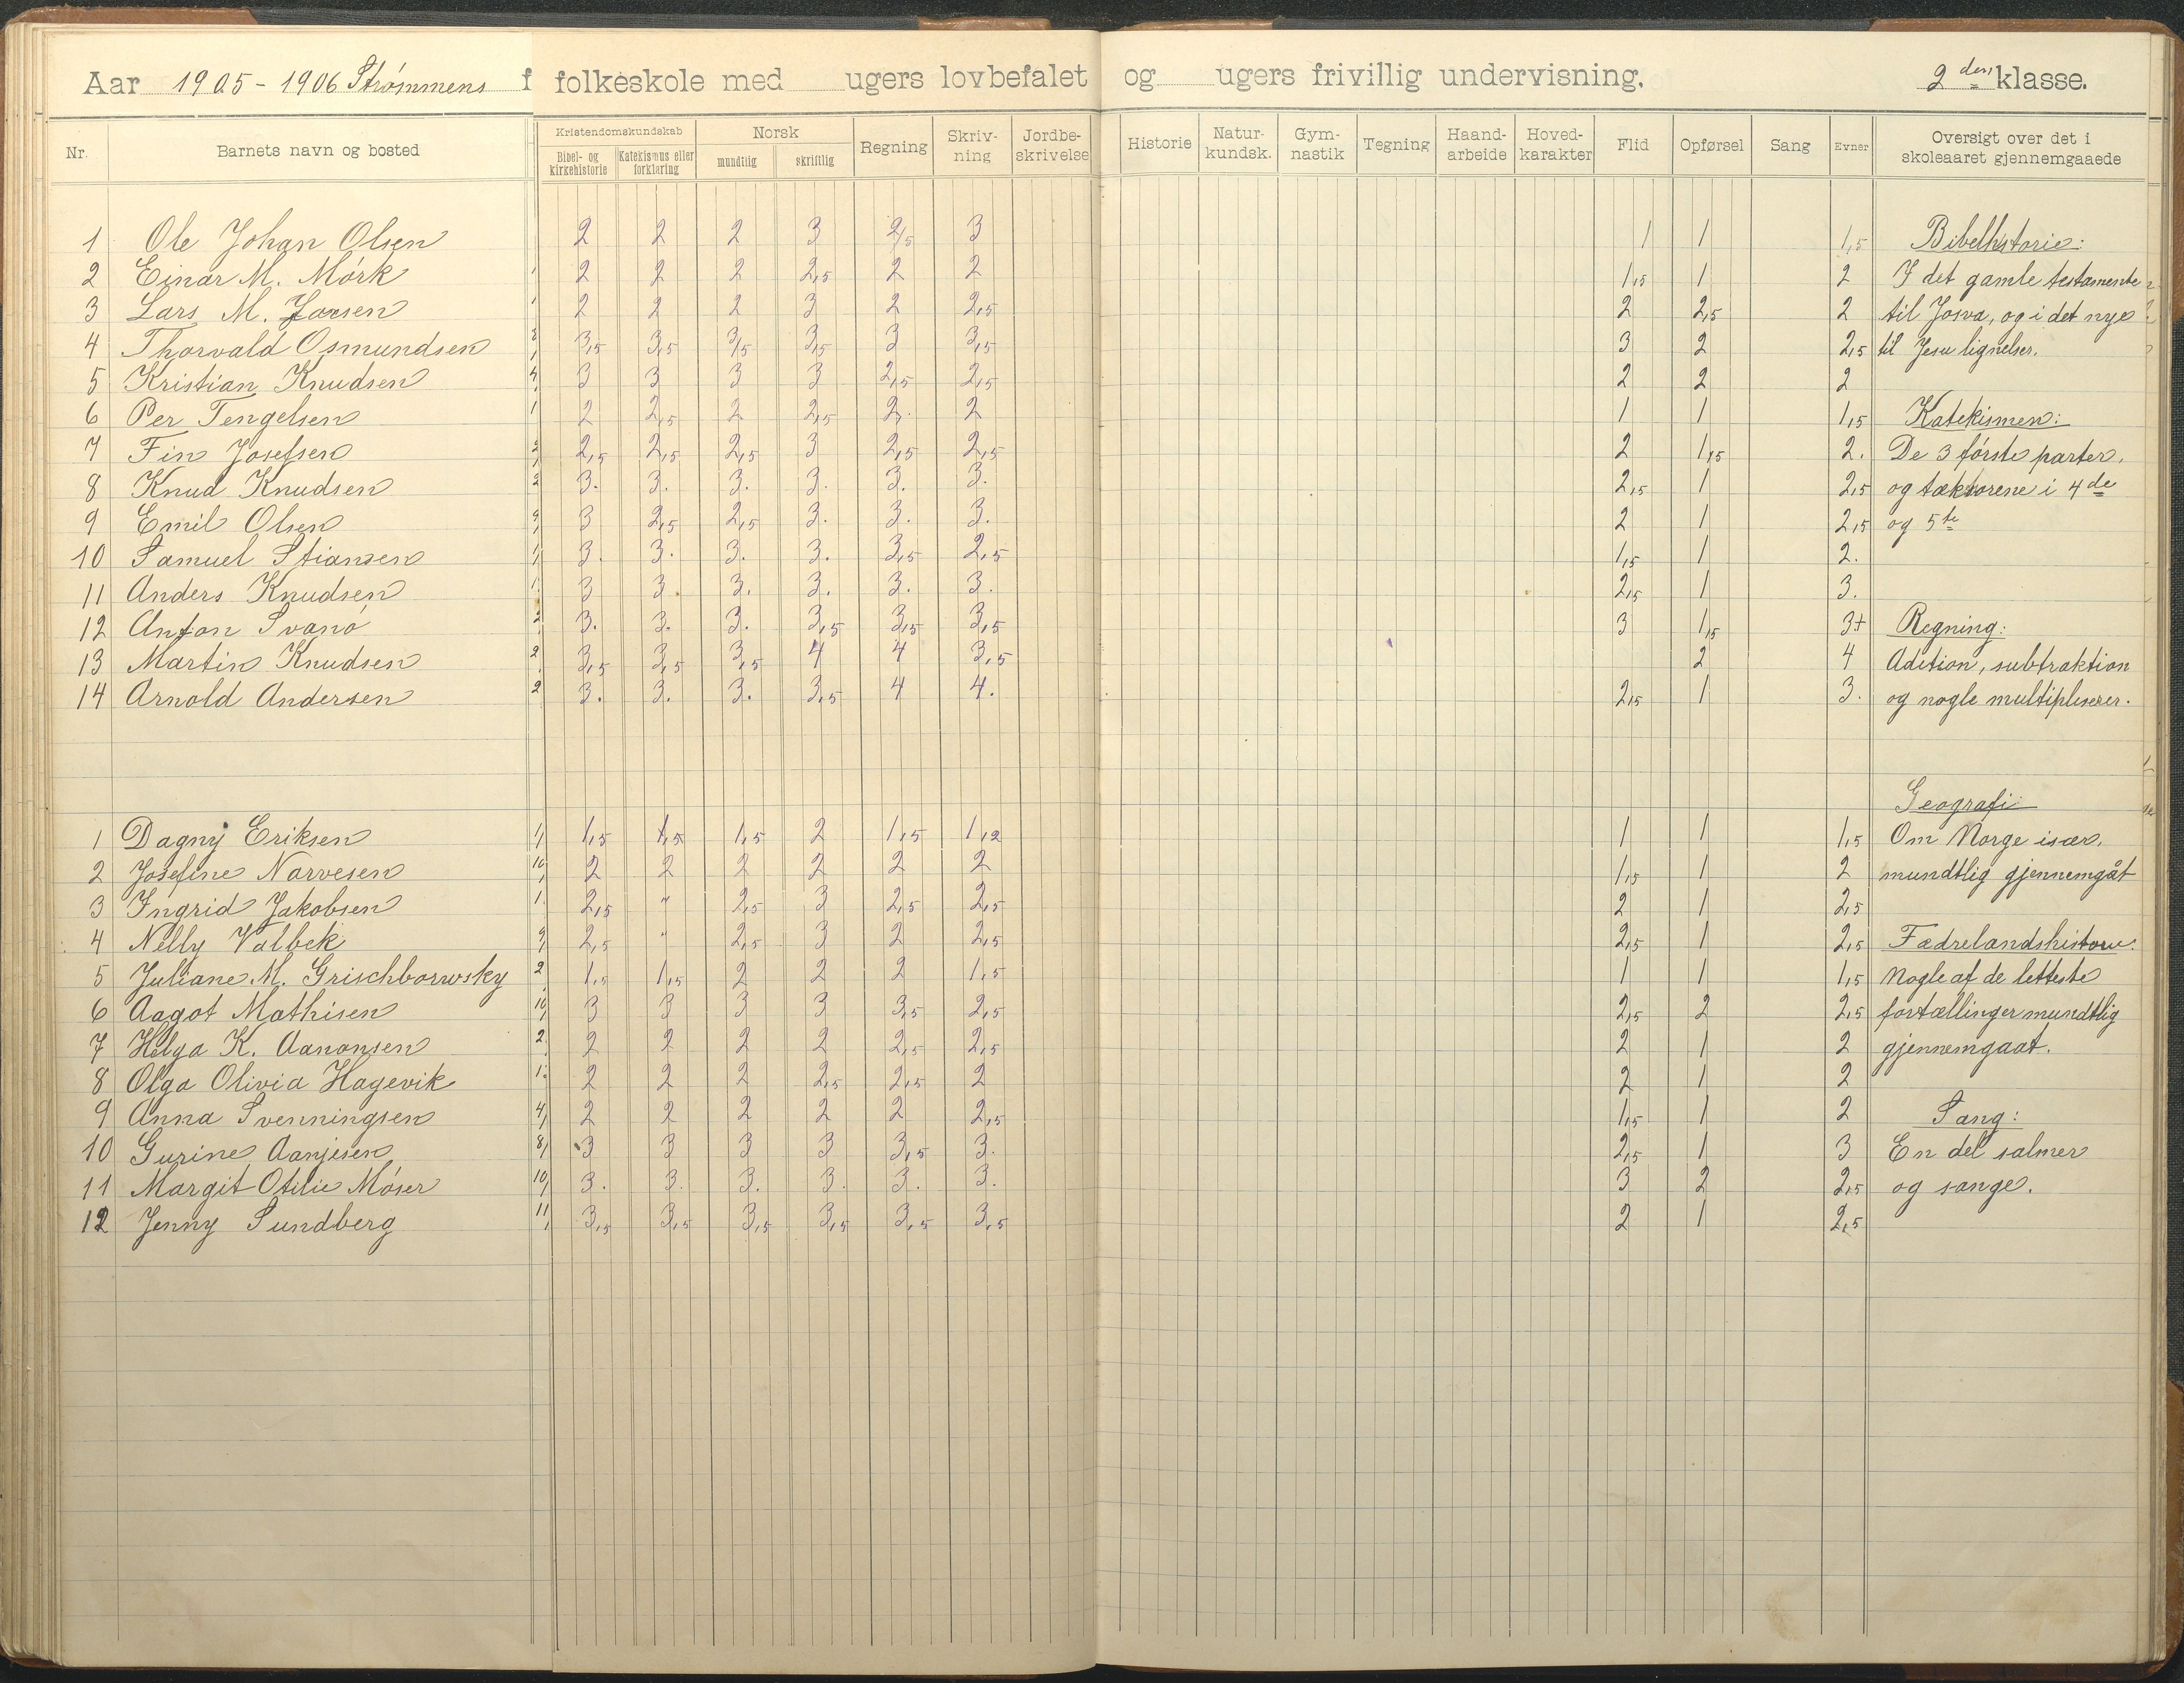 Aar 1905-1906 Strømmens folkeskole med ugers lovbefalet og ugers frivillig undervisning. 2den klasse.
Nr. Barnets navn og bosted Kristendomskundskab Norsk Regning Skriv-ning Jordbe-skrivelse Historie Natur-kundsk. Gym-nastik Tegning Haand-arbeide Hoved-karakter Flid Opførsel Sang Evner Oversigt over det i skoleaaret gjennemgaaede
Bibel- og kirkehistorie Katekismus eller forklaring mundtlig skriftlig
1 Ole Johan Olsen 2 2 2 3 2,5 3 1 1 1,5 Bibelhistorie:
2 Einar M. Mörk 2 2 2 2,5 2 2 1,5 1 2 I det gamle testamente
3 Lars M. Jonsen 2 2 2 3 2 2,5 2 2,5 2 til Josva, og i det nye
4 Thorvald Osmundsen 3,5 3,5 3,5 3,5 3 3,5 3 2 2,5 til Jesu lignelser.
5 Kristian Knudsen 3 3 3 3 2,5 2,5 2 2 2
6 Per Tengelsen 2 2,5 2 2,5 2. 2 1 1 1,5 Katekismen:
7 Fin Josefsen 2,5 2,5 2,5 3 2,5 2,5 2 1,5 2. De 3 förste parter,
8 Knud Knudsen 3. 3. 3. 3. 3. 3. 2,5 1 2,5 og tækstorene i 4de
9 Emil Olsen 3 2,5 2,5 3. 3. 3. 2 1 2,5 og 5te
10 Samuel Stiansen 3. 3. 3. 3. 3,5 2,5 1,5 1 2.
11 Anders Knudsen 3 3. 3. 3. 3. 3. 2,5 1 3.
12 Anton Svanö 3. 3. 3. 3,5 3,5 3,5 3 1,5 3+ Regning:
13 Martin Knudsen 3,5 3,5 3,5 4 4 3,5 2 4 Adition, subtraktion
14 Arnold Andersen 3. 3. 3. 3,5 4 4. 2,5 1 3. og nogle multipliserer.
Geografi
1 Dagny Eriksen 1,5 1,5 1,5 2 1,5 1,2 1 1 1,5 Om Norge især,
2 Josefine Narvesen 2 2 2 2 2 2 1,5 1 2 mundtlig gjennemgåt
3 Ingrid Jakobsen 2,5 " 2,5 3 2,5 2,5 2 1 2,5
4 Nelly Valbek 2,5 " 2,5 3 2 2,5 2,5 1 2,5 Fædrelandshistorie.
5 Juliane M. Grischbowsky 1,5 1,5 2 2 2 1,5 1 1 1,5 Nogle af de letteste
6 Aagot Mathisen 3 3 3 3 3,5 2,5 2,5 2 2,5 fortællinger mundtlig
7 Helga K. Aanonsen 2 2 2 2 2,5 2,5 2 1 2 gjennemgaat.
8 Olga Olivia Hagevik 2 2 2 2,5 2,5 2 2 1 2
9 Anna Svenningsen 2 2 2 2 2 2,5 1,5 1 2 Sang:
10 Gurine Aanjesen 3 3 3 3 3,5 3. 2,5 1 3 En del salmer
11 Margit Otilie Möser 3. 3. 3. 3. 3. 3. 3 2 2,5 og sange.
12 Jenny Sundberg 3,5 3,5 3,5 3,5 3,5 3,5 2 1 2,5